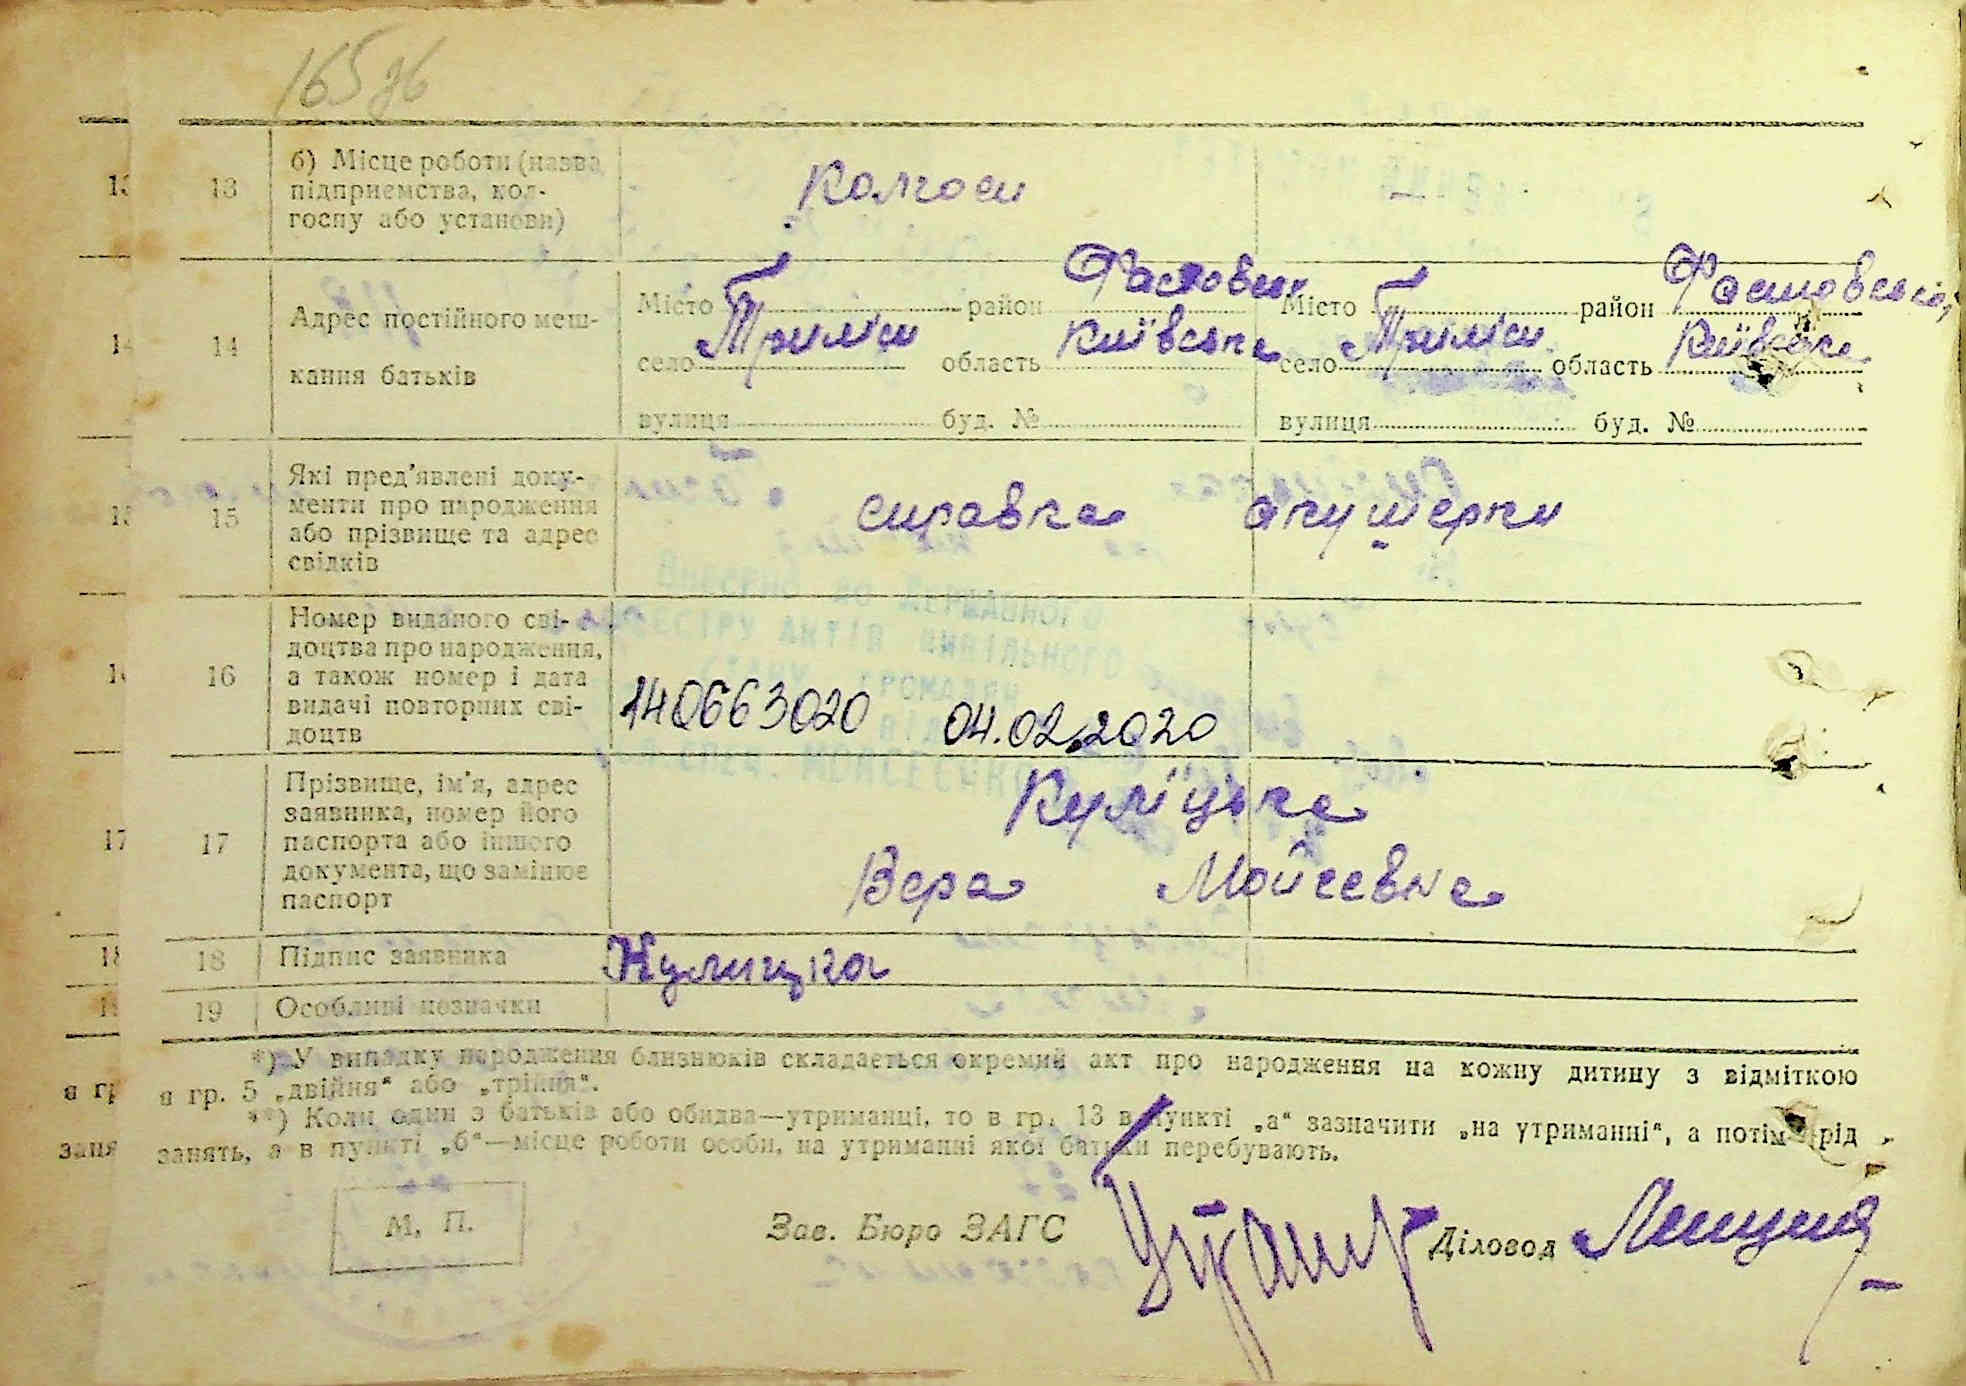 165зв
13 б) Місце роботи (назва
підприємства, кол-
госпу або установи)
Колгосп —
14 Адрес постійного меш-
кання батьків
Місто район Фастовськ Місто район Фастовській
село Триліси область Київська село Триліси область Київська
вулиця буд. № вулиця буд. №
15 Які пред'явлені доку-
менти про народження
або прізвище та адрес
свідків
справка акушерки
16 Номер виданого сві-
доцтва про народження,
а також номер і дата
видачі повторних сві-
доцтв
140663020 04.02.2020
ВНЕСЕНО ДО ДЕРЖАВНОГО
РЕЄСТРУ АКТІВ ЦИВІЛЬНОГО
СТАНУ ГРОМАДЯН
17 Прізвище, ім'я, адрес
заявника, номер його
паспорта або іншого
документа, що замінює
паспорт
Куліцька
Вера Мойсевна
18 Підпис заявника Кулицка
19 Особливі позначки
*) У випадку народження близнюків складається окремий акт про народження на кожну дитину з відміткою
в гр. 5 „двійня“ або „трійня“.
**) Коли один з батьків або обидва—утриманці, то в гр. 13 в пункті „а“ зазначити „на утриманні“, а потім рід
занять, а в пункті „б“—місце роботи особи, на утриманні якої батьки перебувають.
М. П.
Зав. Бюро ЗАГС Діловод